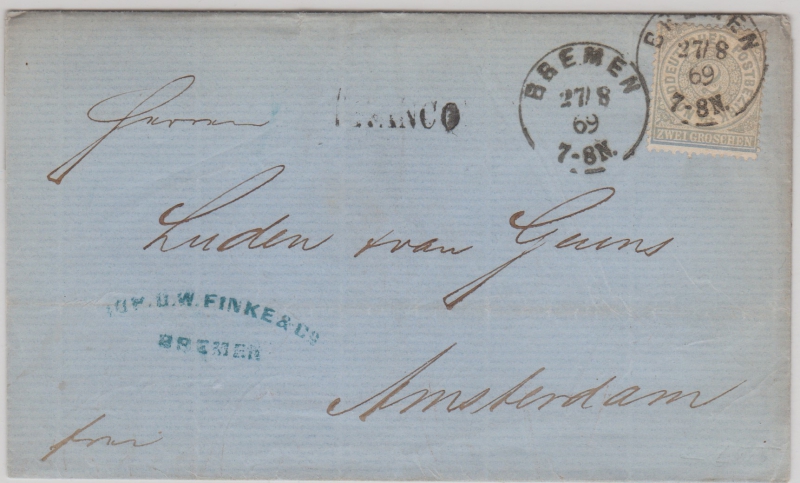 BREMEN
27/8
69
7-8N.
BREMEN
27/8
69
7-8N.
ZWEI GROSCHEN
FRANCO
Herren
Luden & van Geuns
W. FINKE & Co
BREMEN
Amsterdam
frei